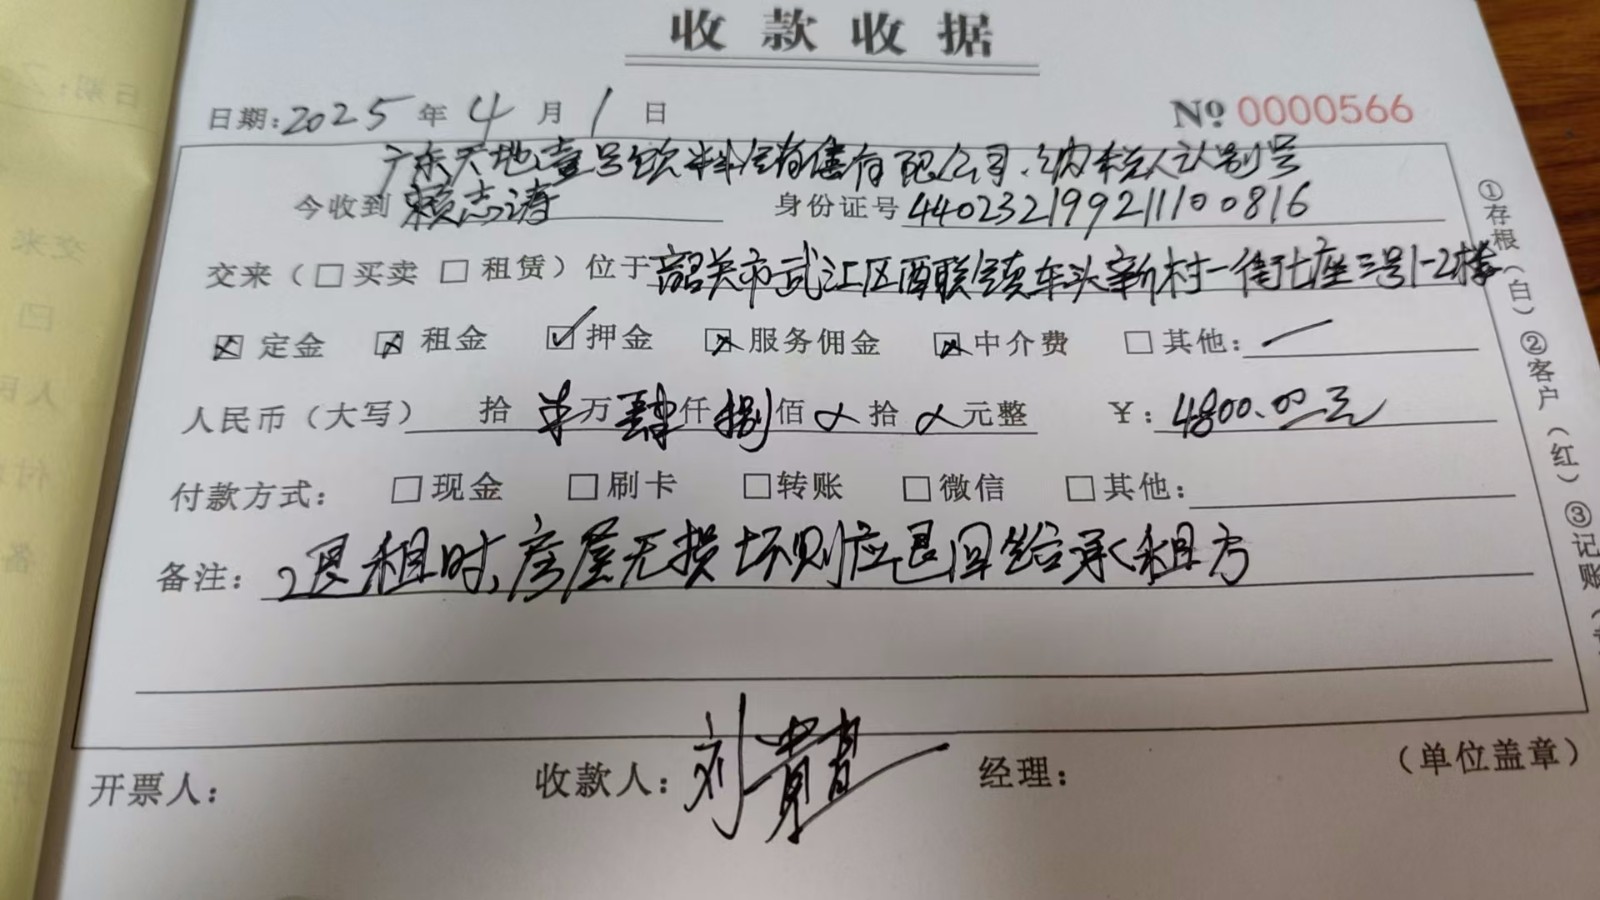 收款收据
日期:2025年4月1日 № 0000566
广东天地壹号饮料销售有限公司、纳税人识别号
今收到 赖志涛 身份证号 440232199211100816
交来(□买卖 □租赁)位于 韶关市武江区西联镇车头新村一街七座三号1-2楼
☒定金 ☒租金 ☑押金 ☒服务佣金 ☒中介费 □其他:
人民币(大写) 拾 万肆仟捌佰 拾 元整 ¥:4800.00元
付款方式: □现金 □刷卡 □转账 □微信 □其他:
备注: 退租时,房屋无损坏则应退回给承租方
开票人: 收款人:刘 经理: (单位盖章)
①存根(白)②客户(红)③记账(